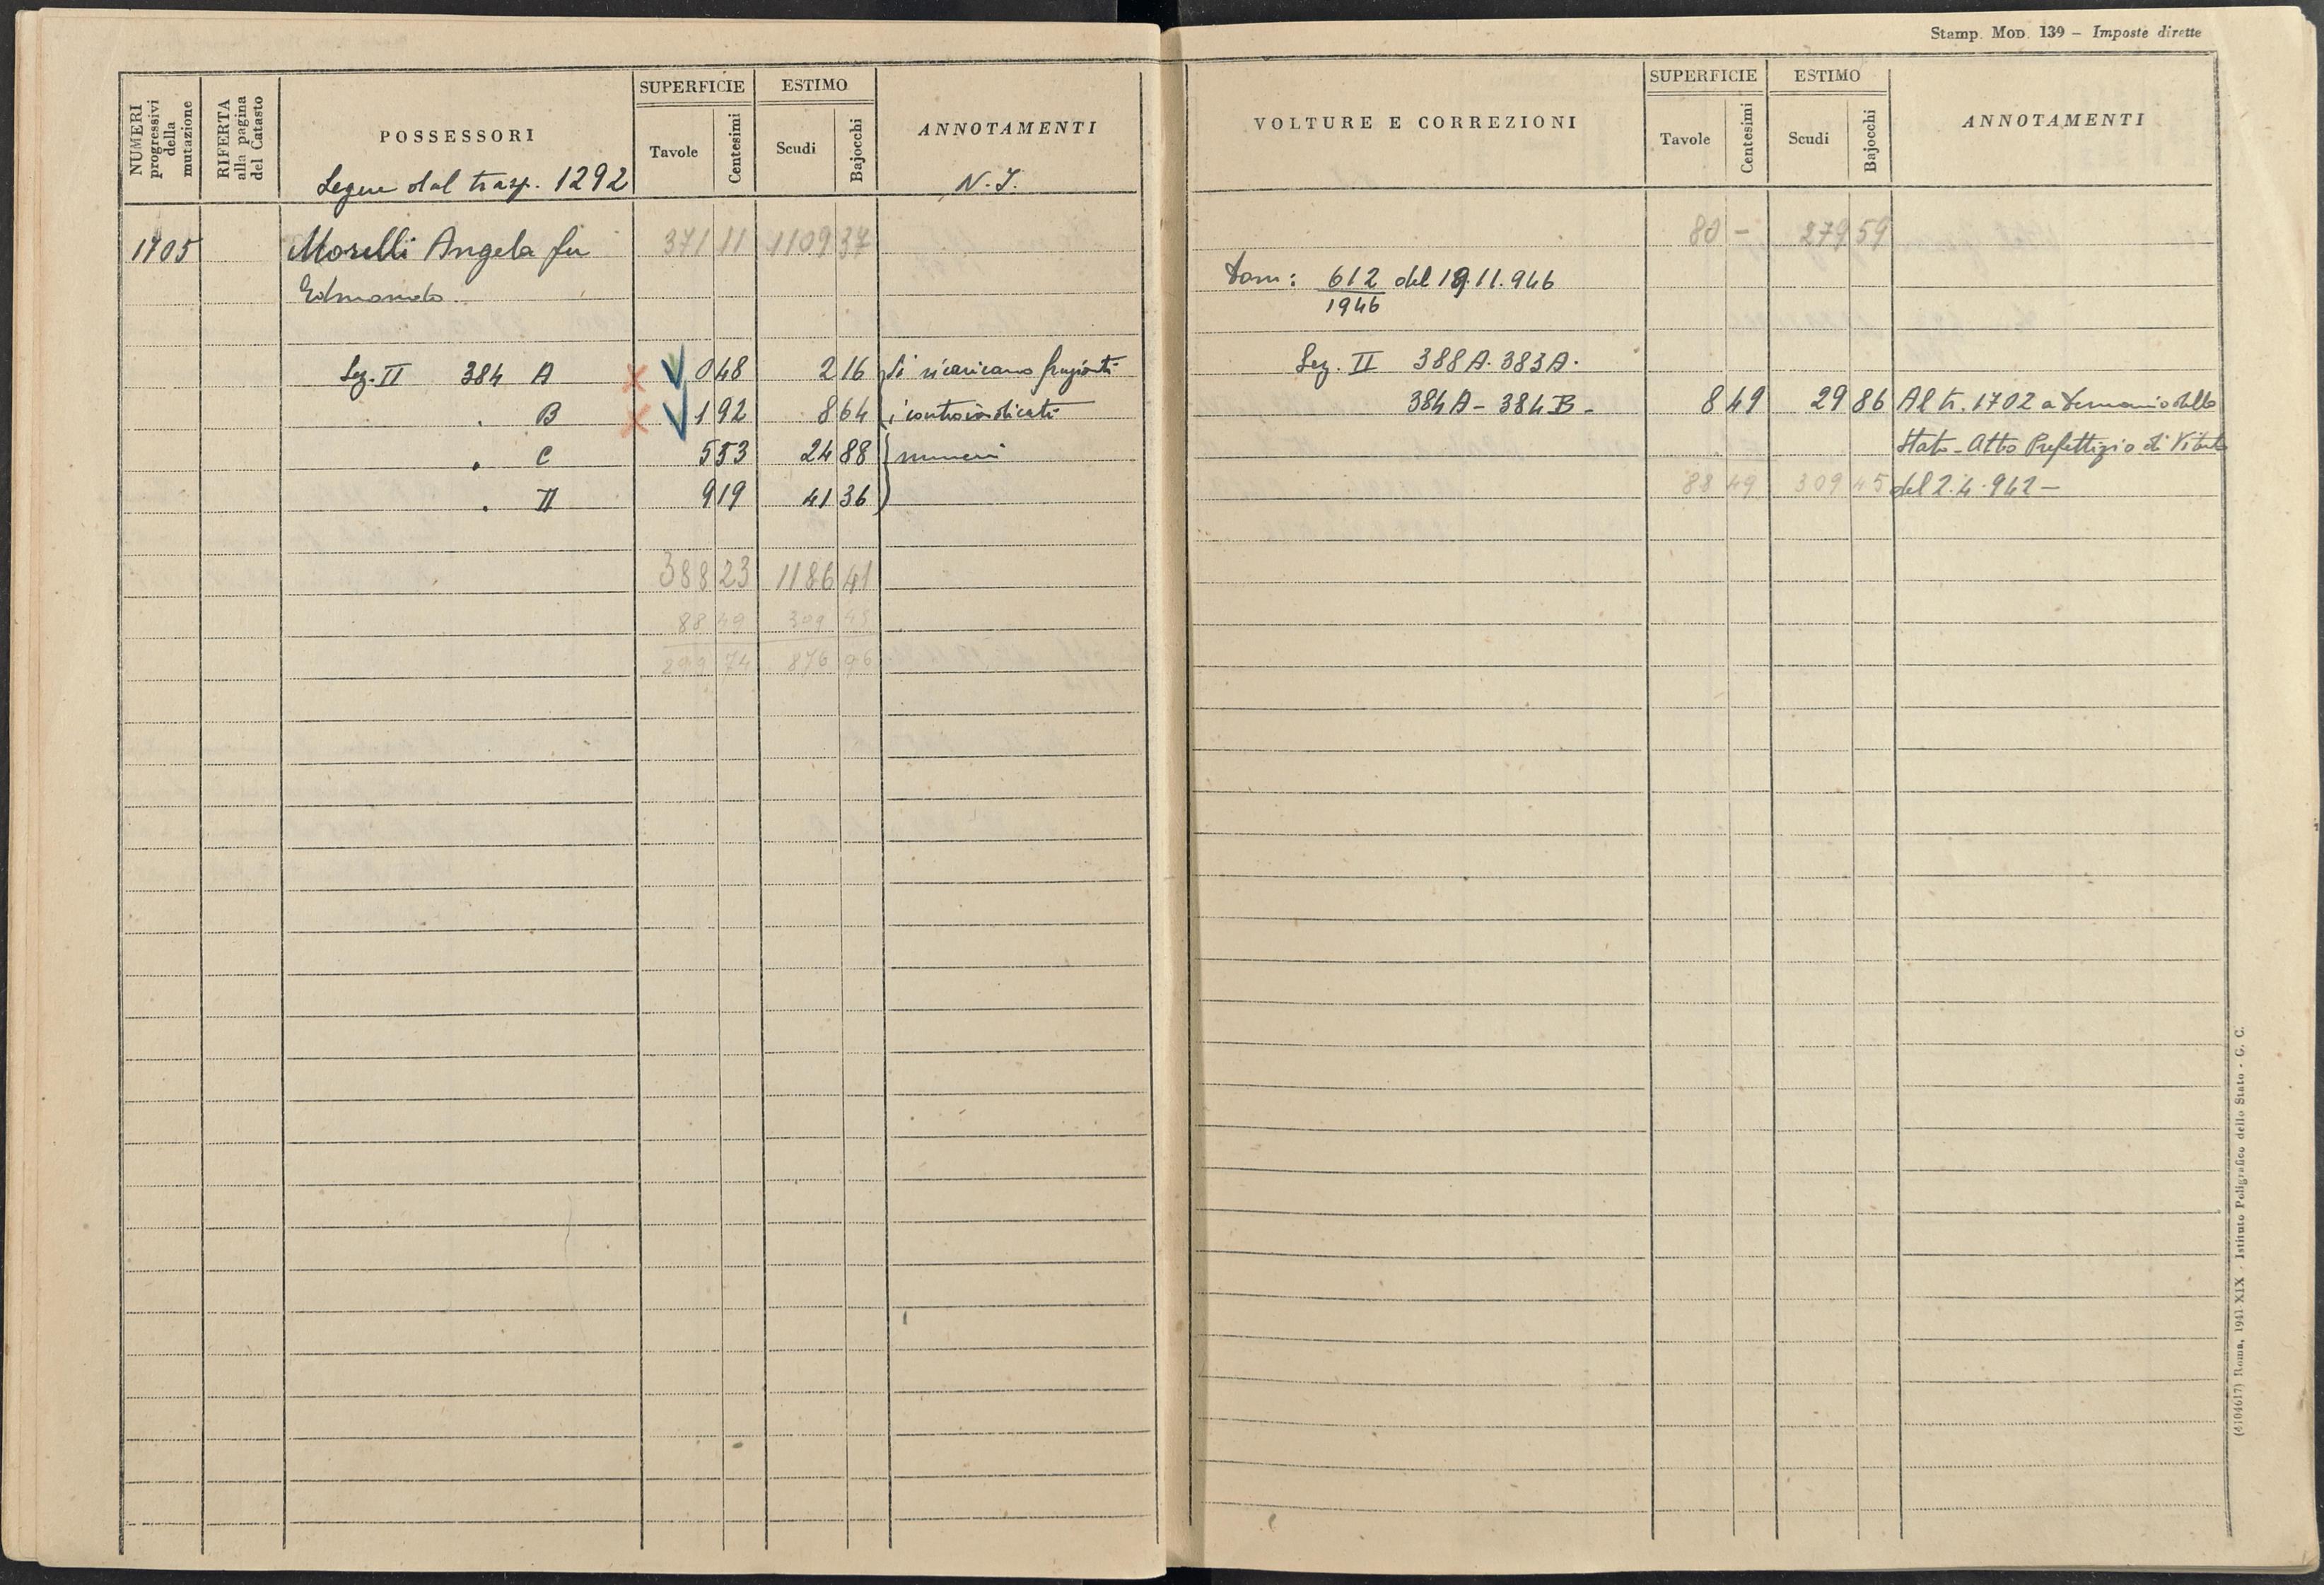 Stamp. MOD. 139 – Imposte dirette
NUMERI progressivi della mutazione
RIFERTA alla pagina del Catasto
POSSESSORI
SUPERFICIE
Tavole Centesimi
ESTIMO
Scudi Bajocchi
ANNOTAMENTI
Segue dal trasp. 1292
N. I.
1705 Morelli Angela fu 371 11 1109 37
Edmondo
Sez. II 384 A × 0 48 2 16 Si ricaricano frazionati
. B × 1 92 8 64 i controindicati
. C 5 53 24 88 numeri
. D 9 19 41 36
388 23 1186 41
88 49 309 45
299 74 876 96
VOLTURE E CORREZIONI
SUPERFICIE
Tavole Centesimi
ESTIMO
Scudi Bajocchi
ANNOTAMENTI
80 – 279 59
Dom: 612/1946 del 19.11.946
Sez. II 388A. 383A.
384A – 384B – 8 49 29 86 Al tr. 1702 a Demanio dello
Stato – Atto Prefettizio di Viterbo
88 49 309 45 del 2.4.942 –
(410461?) Roma, 1941-XIX - Istituto Poligrafico dello Stato - G. C.